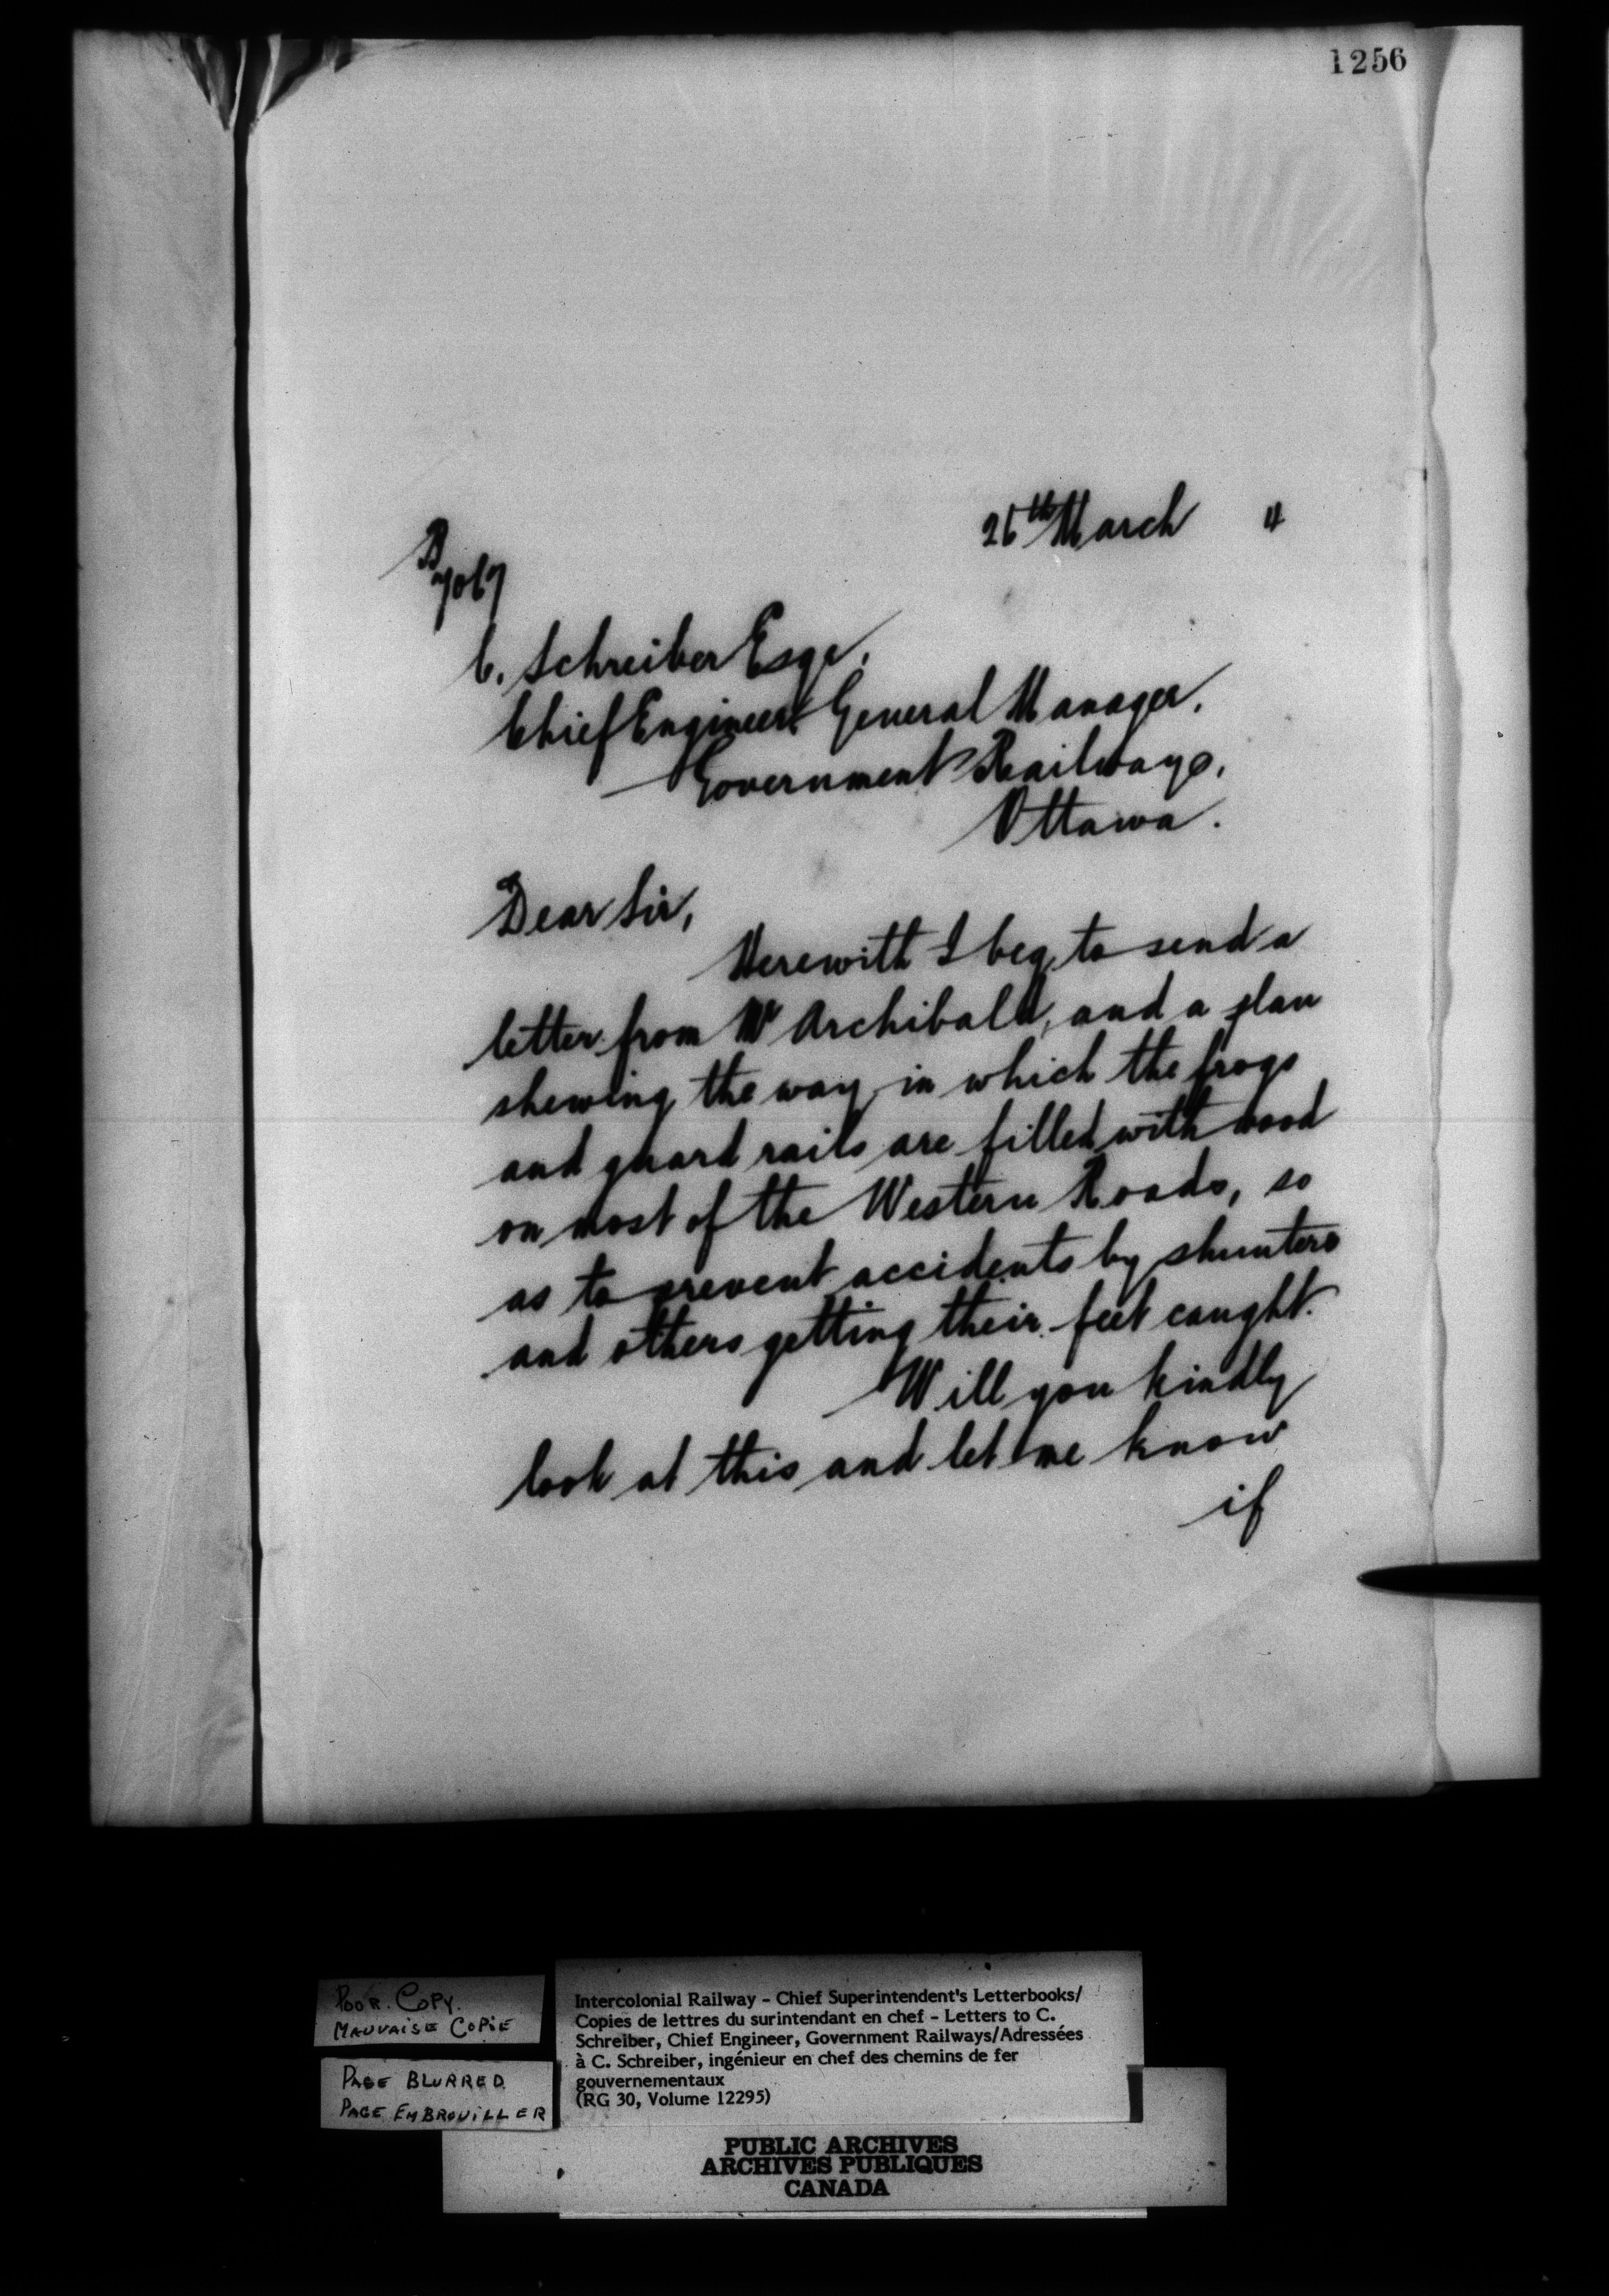 1256
26th March 4
B
7067
C. Schreiber Esqe,
Chief Engineer & General Manager,
Government Railways,
Ottawa.
Dear Sir,
Herewith I beg to send a
letter from Mr Archibald, and a plan
shewing the way in which the frogs
and guard rails are filled with wood
on most of the Western Roads, so
as to prevent accidents by shunters
and others getting their feet caught.
Will you kindly
look at this and let me know
if
POOR COPY.
MAUVAISE COPIE
PAGE BLURRED
PAGE EMBROUILLER
Intercolonial Railway - Chief Superintendent's Letterbooks/
Copies de lettres du surintendant en chef - Letters to C.
Schreiber, Chief Engineer, Government Railways/Adressées
à C. Schreiber, ingénieur en chef des chemins de fer
gouvernementaux
(RG 30, Volume 12295)
PUBLIC ARCHIVES
ARCHIVES PUBLIQUES
CANADA